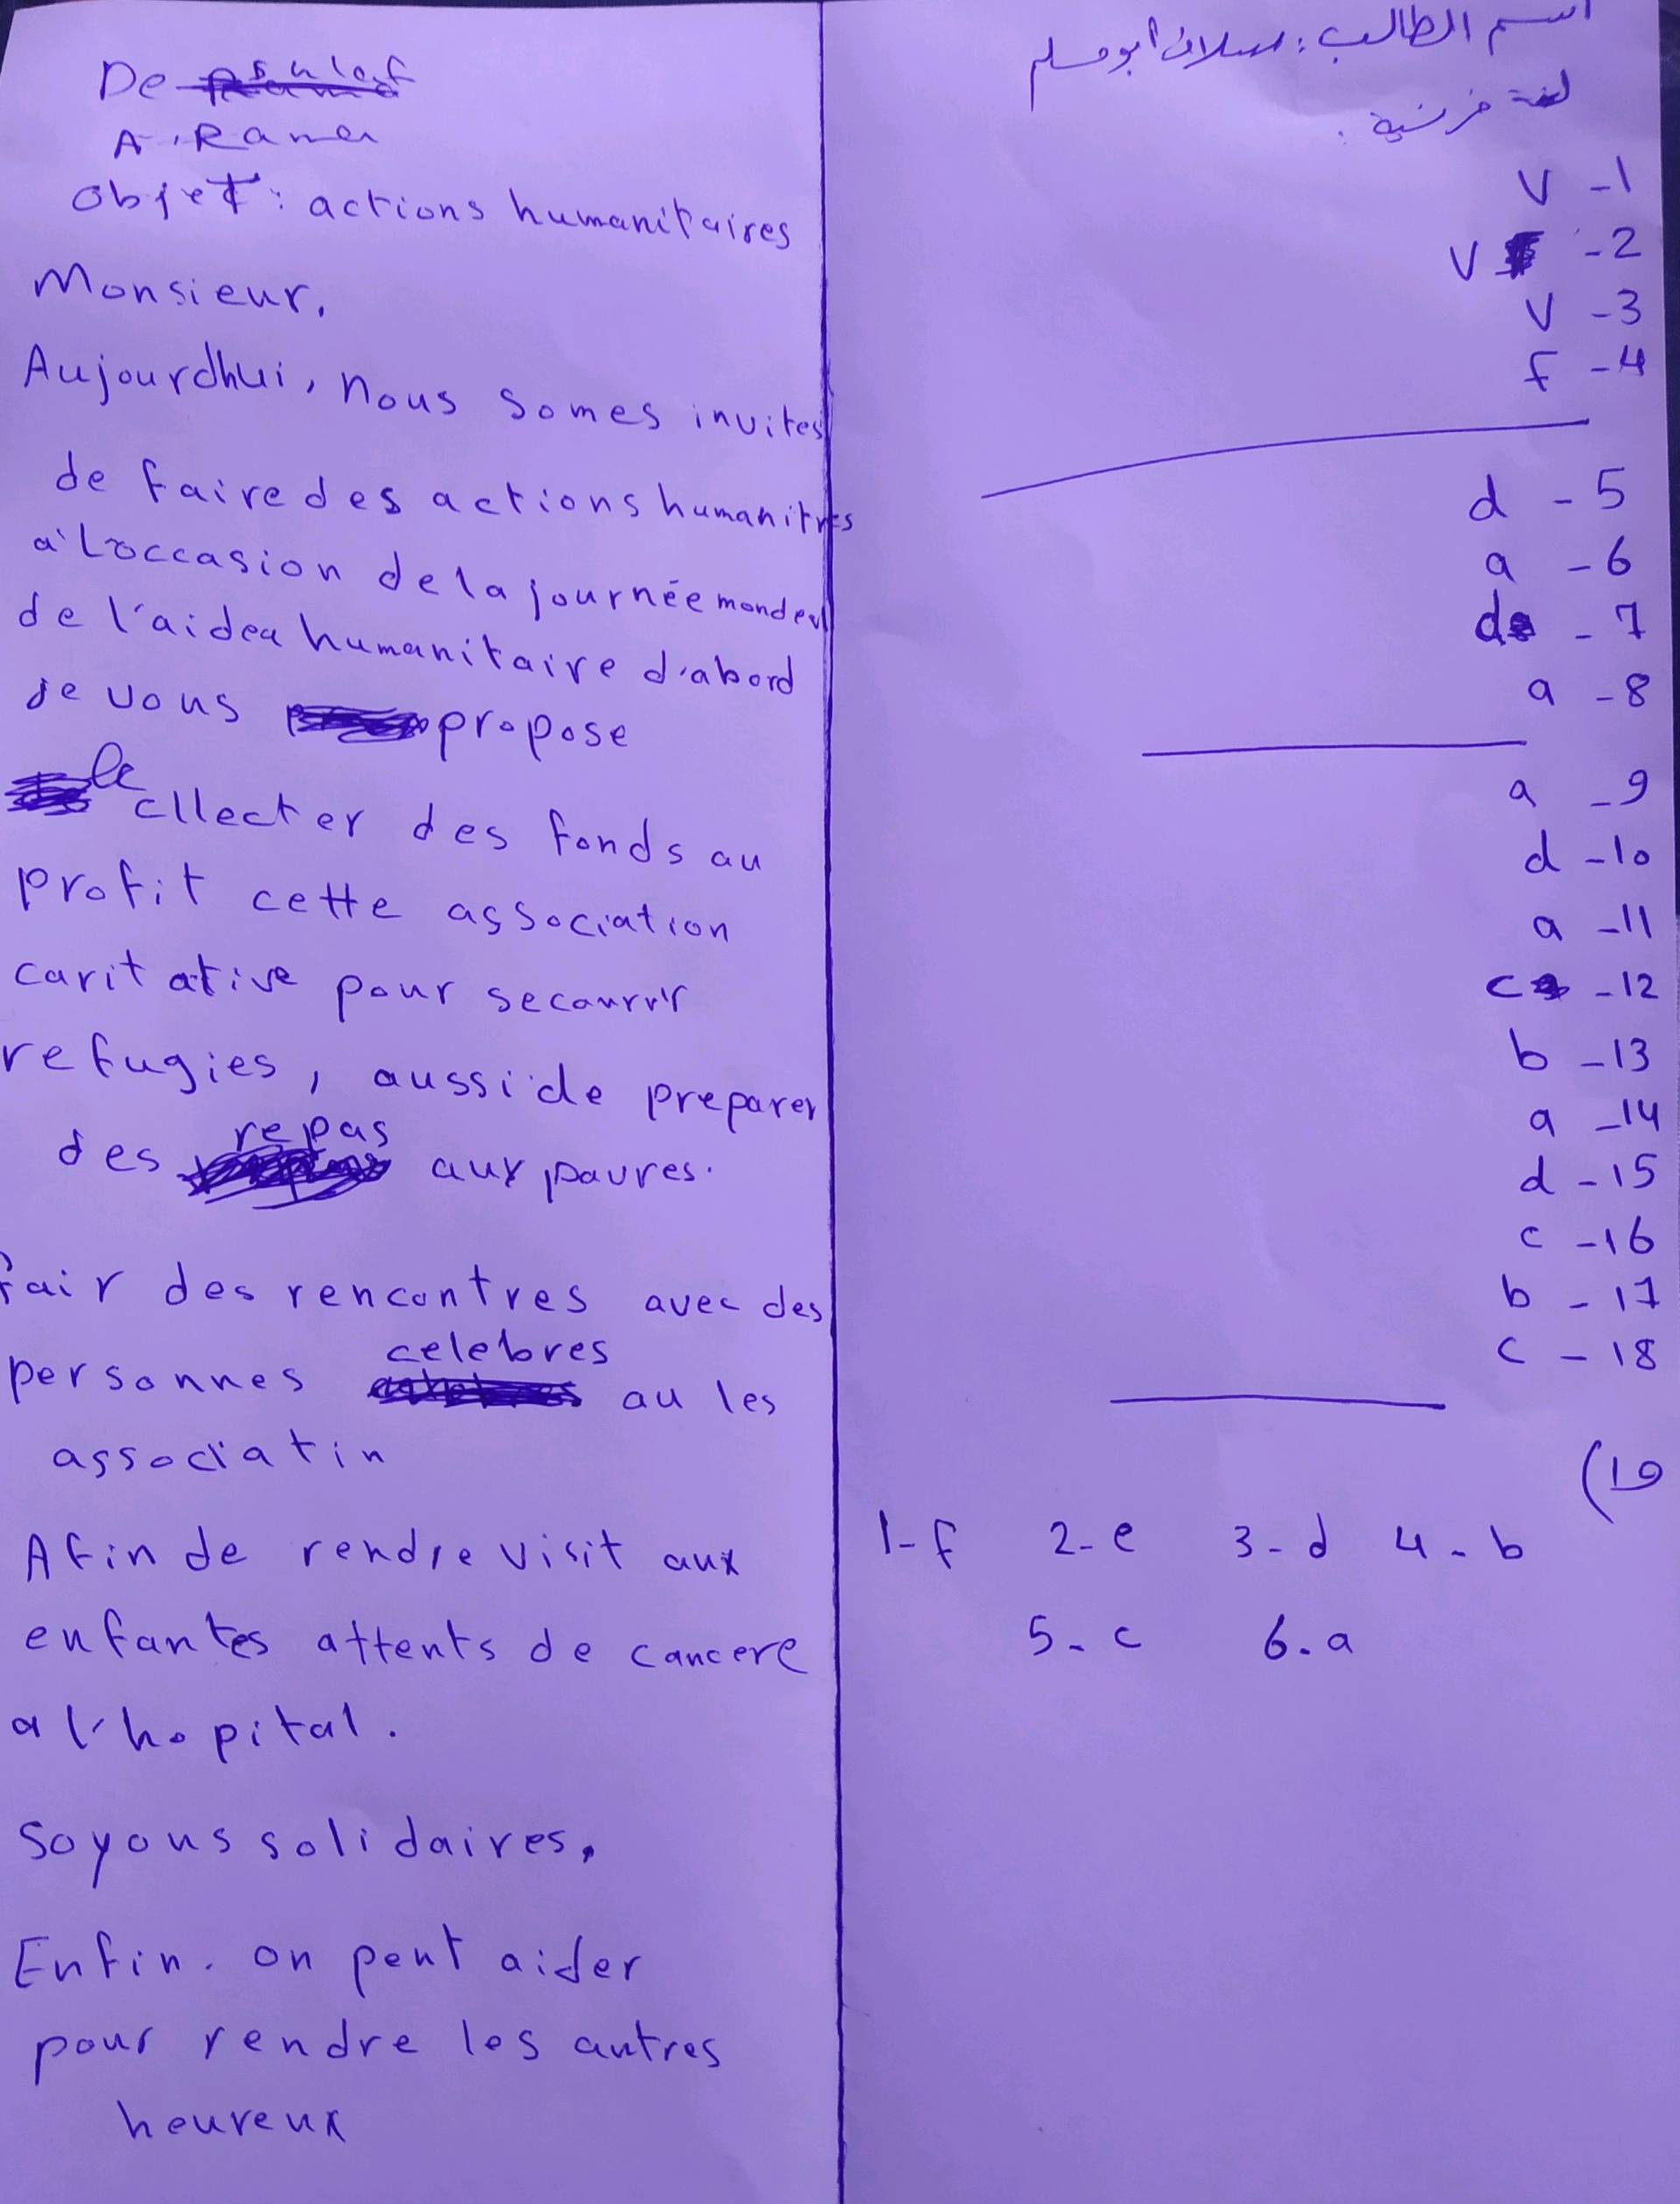 اسم الطالب: سلاف ابو مسلم
لغة فرنسية:
V -1
V -2
V -3
f -4
d - 5
a - 6
d - 7
a - 8
a - 9
d - 10
a - 11
c - 12
b - 13
a - 14
d - 15
c - 16
b - 17
c - 18
(19
1-f 2-e 3-d 4-b
5-c 6-a
De
A
Objet: actions humanitaires
Monsieur,
Aujourdhui, nous somes invites
de faire des actions humanitres
a l'occasion de la journée
de l'aidea humanitaire d'abord
je vous propose
de cllecter des fonds au
profit cette association
caritative pour secourrir
refugies, aussi de preparer
des repas aux pauvres.
fair des rencontres avec des
personnes celebres au les
associatin
Afin de rendre visit aux
enfantes attents de cancere
a l'hopital.
Soyous solidaires,
Enfin. on peut aider
pour rendre les autres
heureux